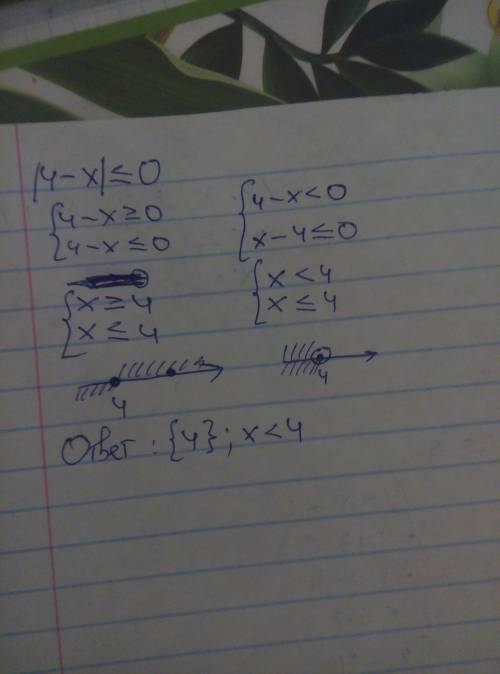 |4-x|≤0
{4-x≥0
4-x≤0
{x≥4
x≤4
4
{4-x<0
x-4≤0
{x<4
x≤4
4
Ответ: {4}; x<4